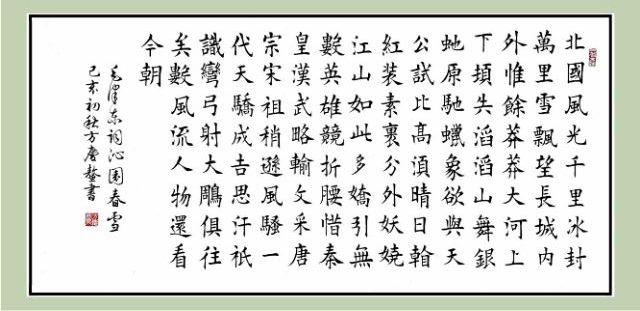 北國風光千里冰封
萬里雪飄望長城内
外惟餘莽莽大河上
下頓失滔滔山舞銀
虵原馳蠟象欲與天
公試比髙湏晴日
紅装素裹分外妖嬈
江山如此多嬌引無
數英雄競折腰惜秦
皇漢武略輸文采唐
宗宋祖稍遜風騷一
代天驕成吉思汗祇
識彎弓射大鵰俱往
矣數風流人物還看
今朝
毛澤东词沁園春雪
己亥初秋方書